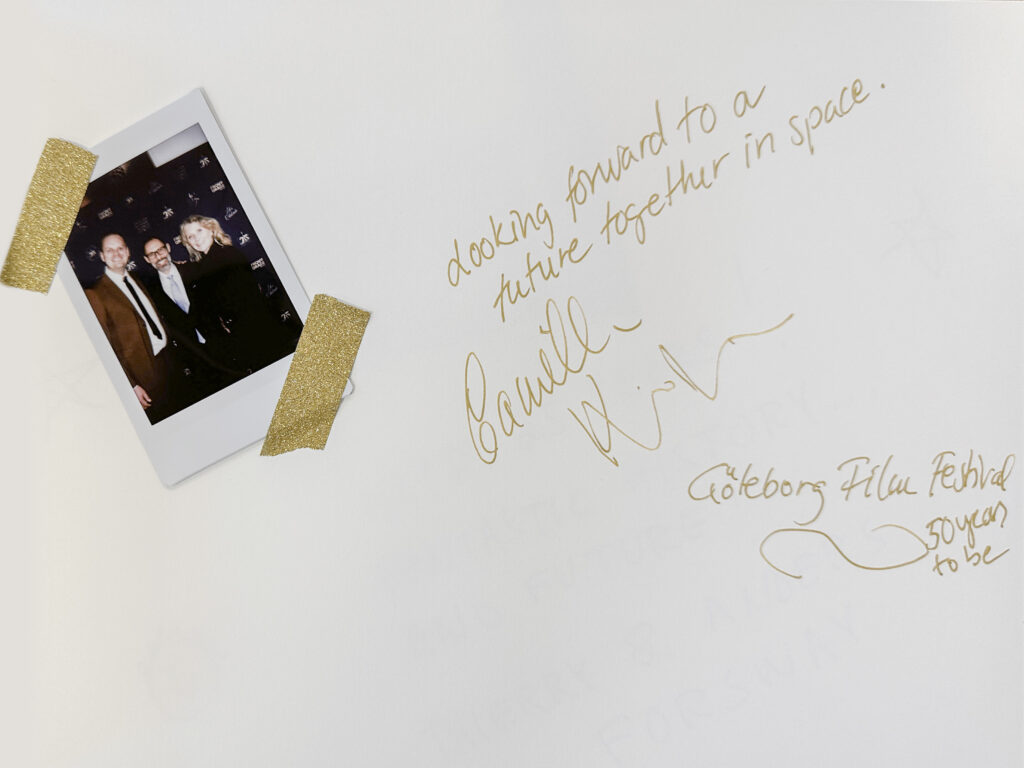 Looking forward to a
future together in space.
Camilla
Göteborg Film Festival
50 years
to be